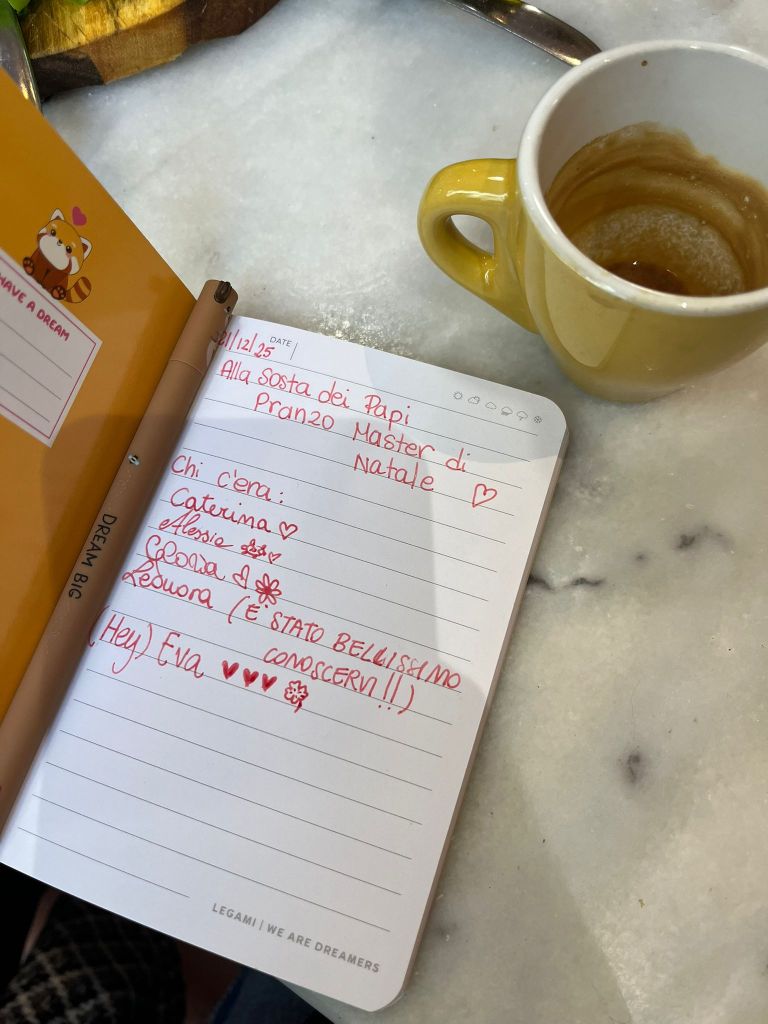 HAVE A DREAM
DREAM BIG
21/12/25 DATE
Alla sosta dei Papi
Pranzo Master di
Natale
Chi c'era:
Caterina
Alessia
Gloria
Leonora (È STATO BELLISSIMO
CONOSCERVI!!)
(Hey) Eva
LEGAMI | WE ARE DREAMERS